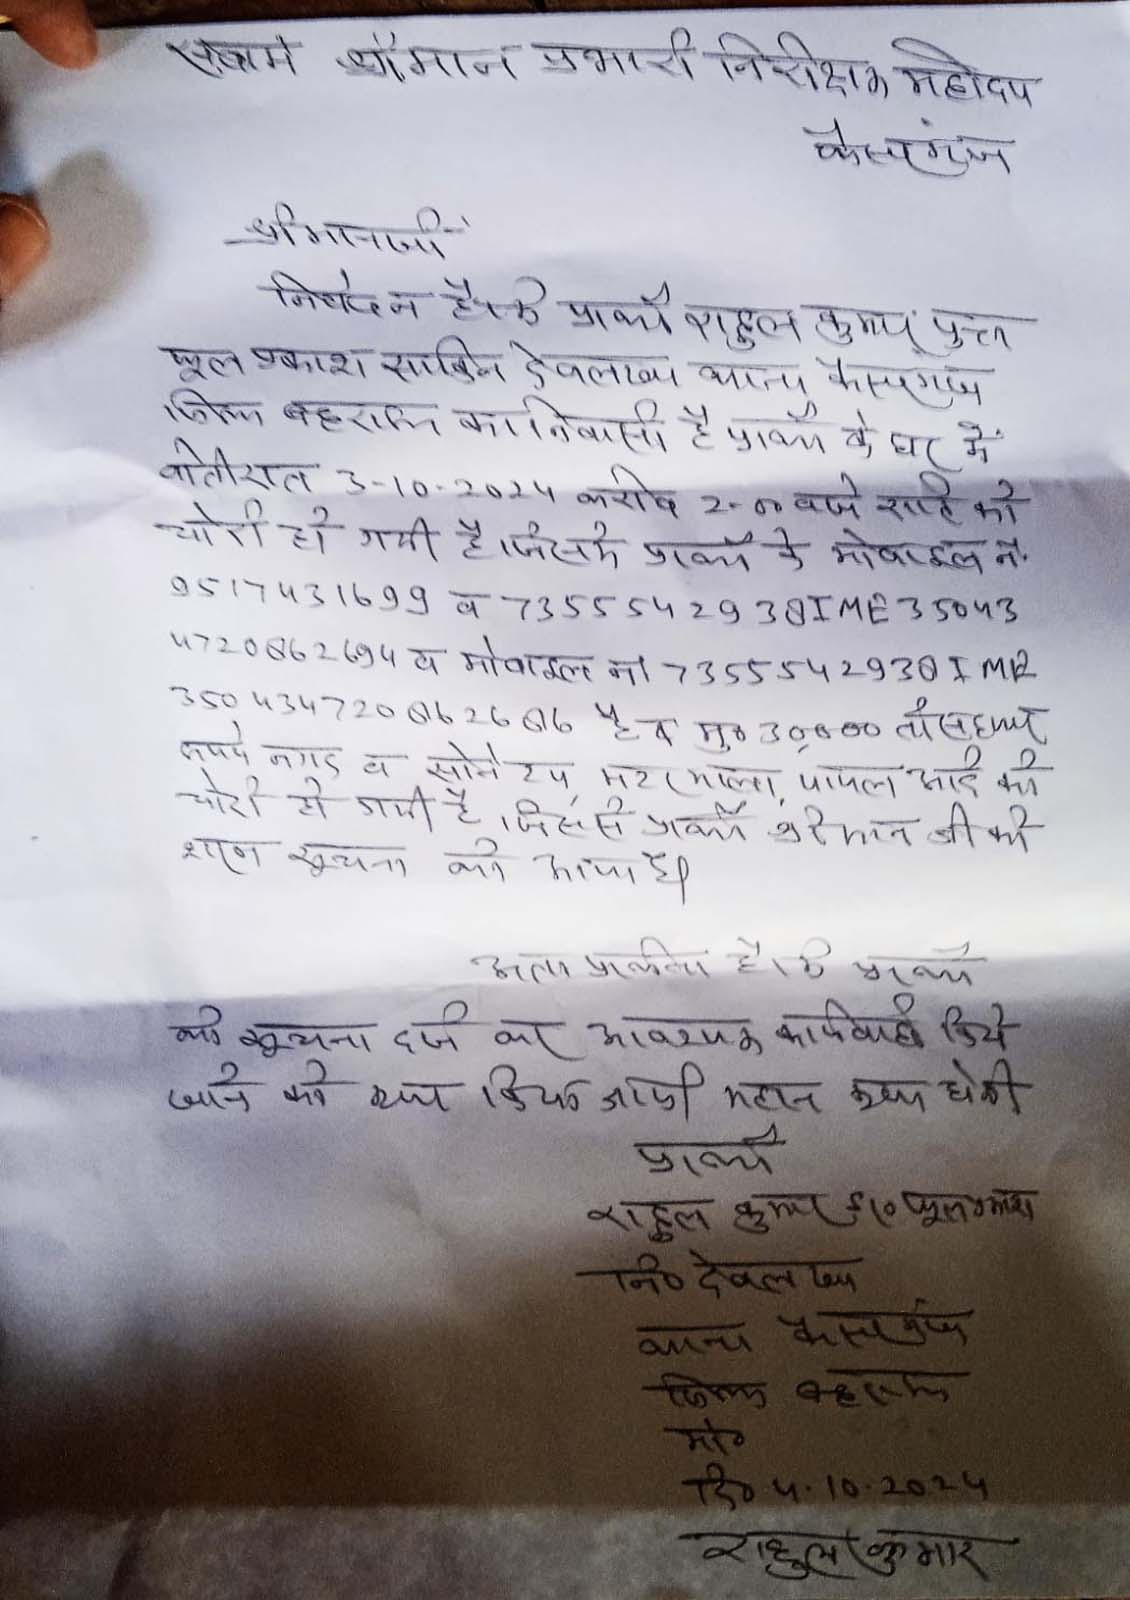 समक्ष श्रीमान प्रभारी निरीक्षक महोदय
कैसरगंज
श्रीमानजी
निवेदन है कि प्रार्थी राहुल कुमार पुत्र
फूल प्रकाश साकिन देवलखा थाना कैसरगंज
जिला बहराइच का निवासी है प्रार्थी के घर में
बीती रात 3-10-2024 करीब 2-00 बजे रात्रि को
चोरी हो गयी है। जिसमें प्रार्थी के मोबाइल नं
9517431699 व 7355542938 IME 35043
4720862694 व मोबाइल नं 7355542938 IME
350434720862686 है व मु० 30,000 तीस हजार
रूपये नगद व सोने टप, मटरमाला, पायल आदि की
चोरी हो गयी है, जिससे प्रार्थी श्रीमान जी को
सूचना को आया है।
अतः प्रार्थना है कि प्रार्थी
की सूचना दर्ज कर आवश्यक कार्यवाही किये
जाने की कृपा किया जाये महान कृपा होगी
प्रार्थी
राहुल कुमार s/o फूलप्रकाश
नि० देवलखा
थाना कैसरगंज
जिला बहराइच
मो०
दि० 4.10.2024
राहुल कुमार